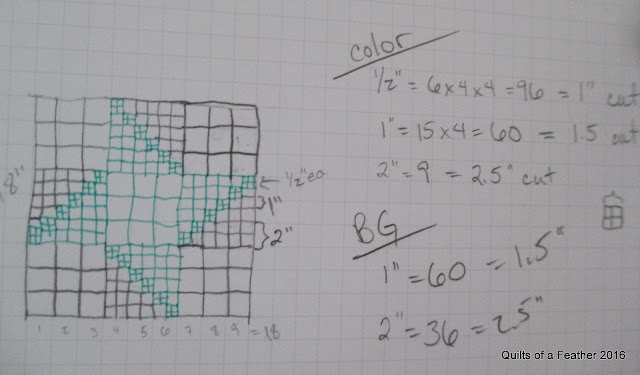 color
1/2" = 6x4x4 = 96 = 1" cut
1" = 15x4 = 60 = 1.5 cut
2" = 9 = 2.5" cut
8"
1/2" ea
1"
2"
BG
1" = 60 = 1.5"
2" = 36 = 2.5"
1 2 3 4 5 6 7 8 9 = 18
Quilts of a Feather 2016